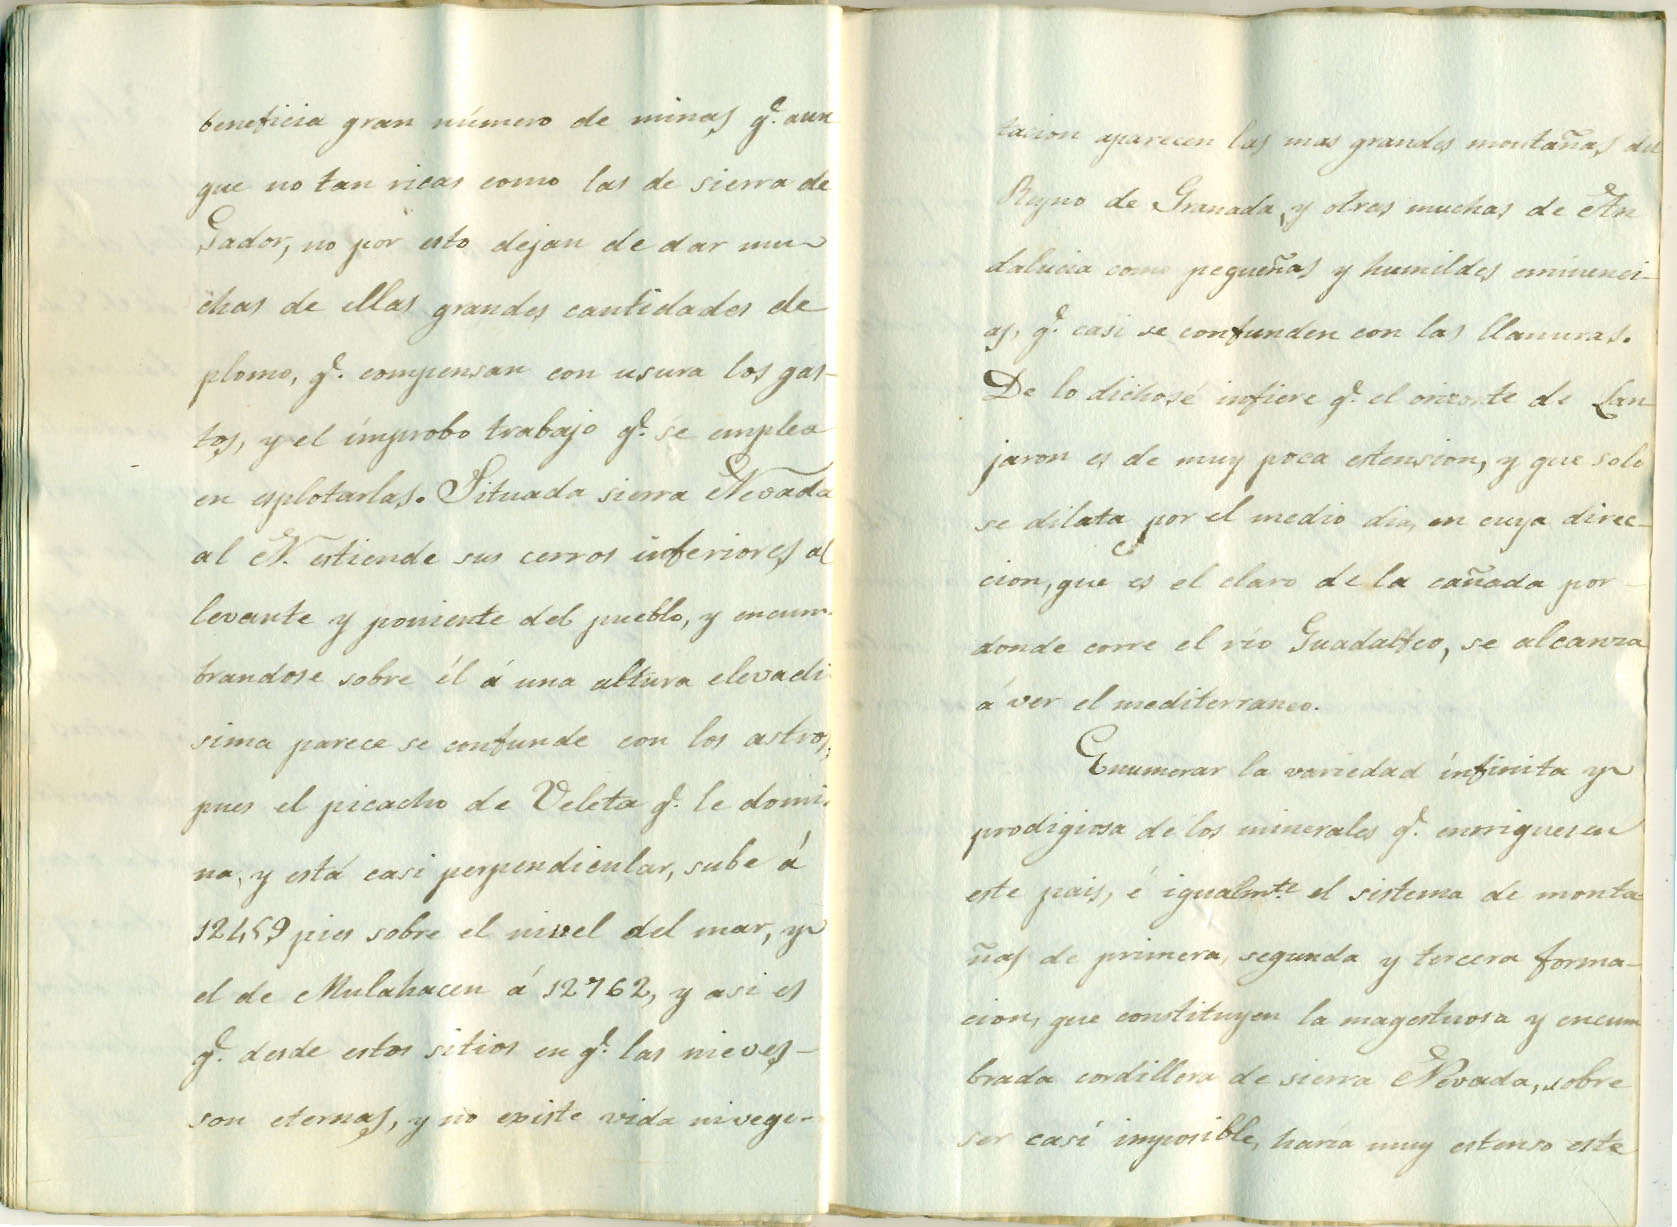 beneficia gran número de minas q.e aun
que no tan ricas como las de sierra de
Gador, no por esto dejan de dar mu
chas de ellas grandes cantidades de
plomo, q.e compensan con usura los gas-
tos, y el ímprobo trabajo q.e se emplea
en esplotarlas. Situada sierra Nevada
al N. estiende sus cerros inferiores al
levante y poniente del pueblo, y encum-
brandose sobre él á una altura elevadi
sima parece se confunde con los astros,
pues el picacho de Veleta q.e le domi-
na, y está casi perpendicular, sube á
12459 pies sobre el nivel del mar, y
el de Mulahacen á 12762, y asi es
q.e desde estos sitios en q.e las nieves-
son eternas, y no existe vida ni vege-
tacion aparecen las mas grandes montañas del
Reyno de Granada, y otras muchas de An
dalucia como pequeñas y humildes eminenci-
as, q.e casi se confunden con las llanuras.
De lo dicho sé infiere q.e el orizonte de Lan
jaron es de muy poca estension, y que solo
se dilata por el medio dia, en cuya direc-
cion, que es el claro de la cañada por-
donde corre el río Guadalfeo, se alcanza
á ver el mediterraneo.
Enumerar la variedad ínfinita y
prodigiosa de los minerales q.e enrriquesen
este pais, é igualm.te el sistema de monta
ñas de primera, segunda y tercera forma-
cion, que constituyen la magestuosa y encum
brada cordillera de sierra Nevada, sobre
ser casi imposible, haria muy estenso este